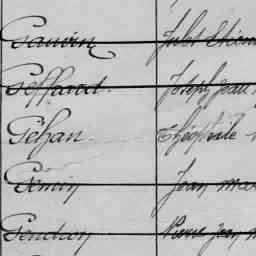 Gauvin Jules
Geffard Joseph Jean
Géhan Théophile
Génin Jean Mar
Gendron Pierre Jean M